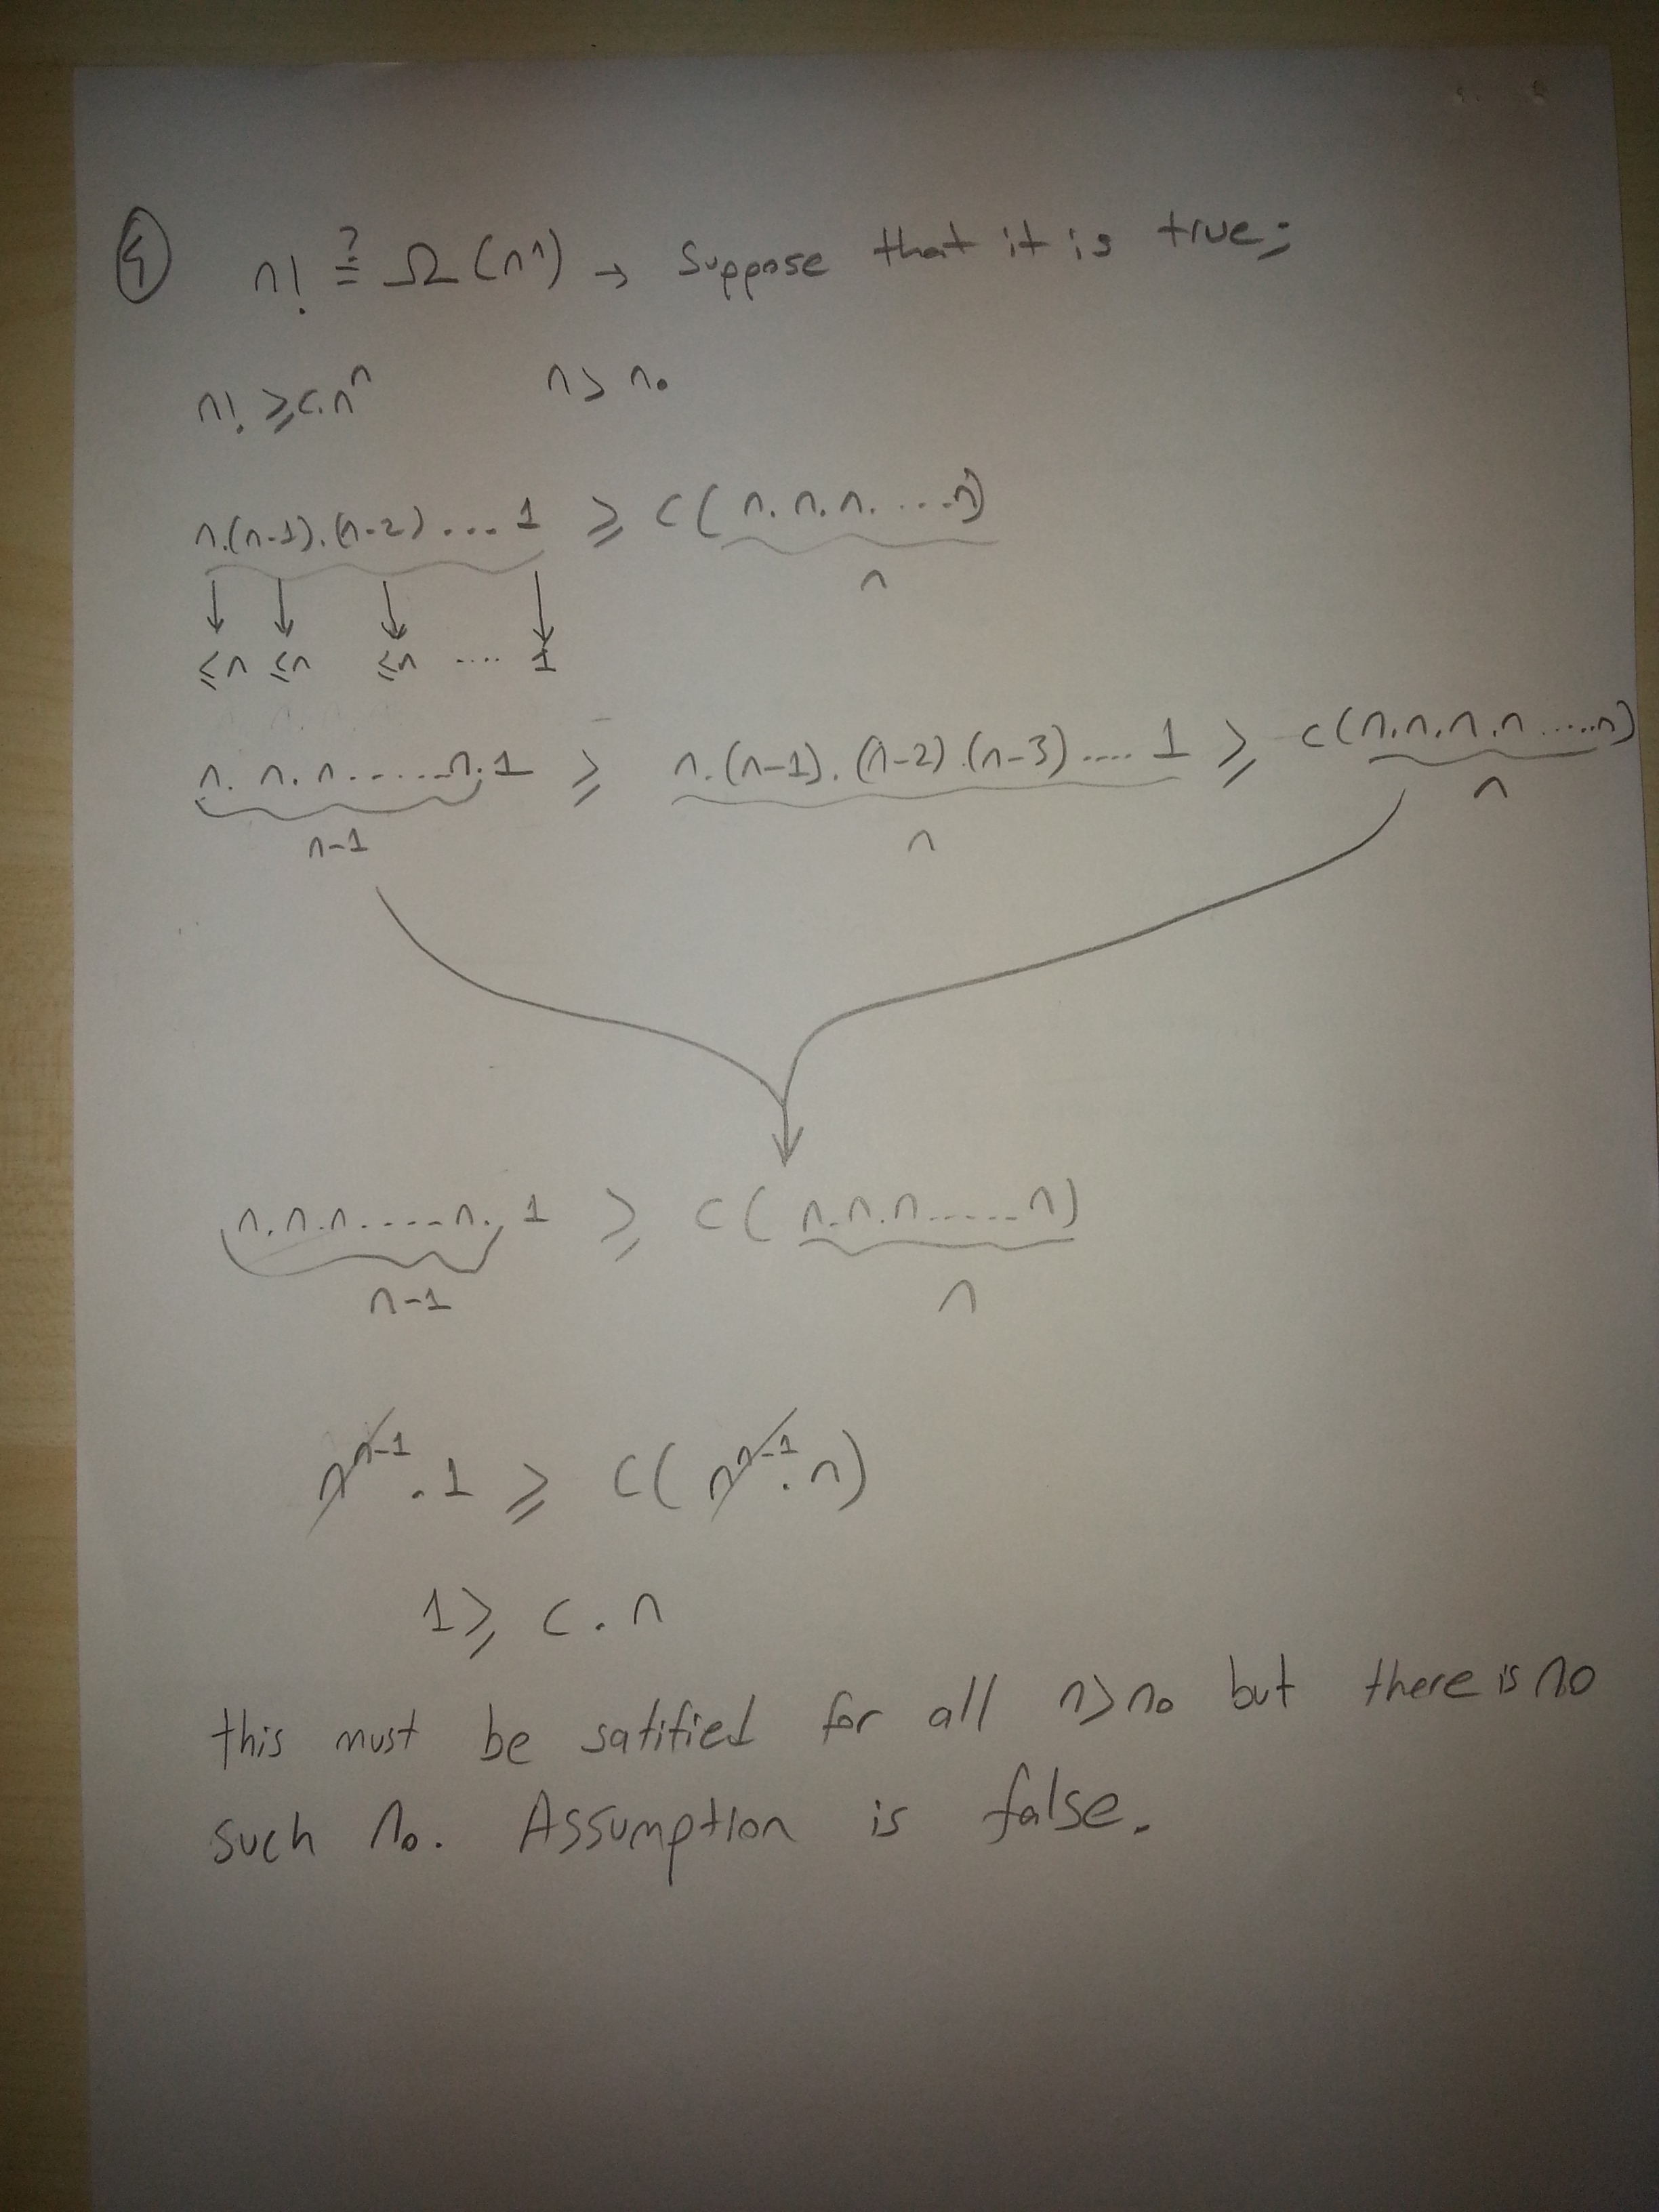 ④ n! ≟ Ω(nⁿ) → Suppose that it is true;
n! ≥ c.nⁿ n > n₀
n.(n-1).(n-2)....1 ≥ c(n.n.n....n)
n
≤n ≤n ≤n .... 1
n.n.n......n.1 ≥ n.(n-1).(n-2).(n-3).....1 ≥ c(n.n.n.n.....n)
n-1 n n
n.n.n.....n.1 ≥ c(n.n.n......n)
n-1 n
nⁿ⁻¹.1 ≥ c(nⁿ⁻¹.n)
1 ≥ c.n
this must be satified for all n > n₀ but there is no
such n₀. Assumption is false.